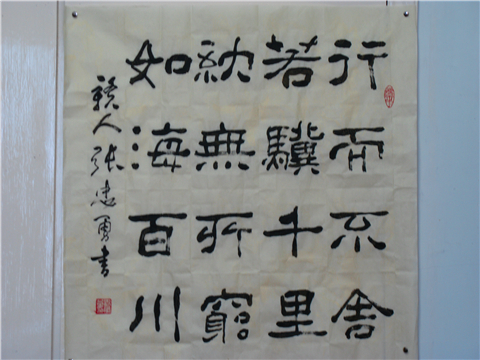 行而不舍
若驥千里
納無所窮
如海百川
赣人张忠勇書